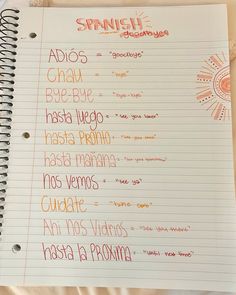 SPANISH
goodbyes
ADIÓS = "goodbye"
Chau = "bye"
BYE-BYE = "bye-bye"
hasta luego = "see you later"
hasta PRONTO = "see you soon"
hasta mañana = "see you tomorrow"
Nos vemos = "see ya"
Cuidate = "take care"
Ahi nos Vidrios = "see you there"
hasta la PROXIMA = "until next time"